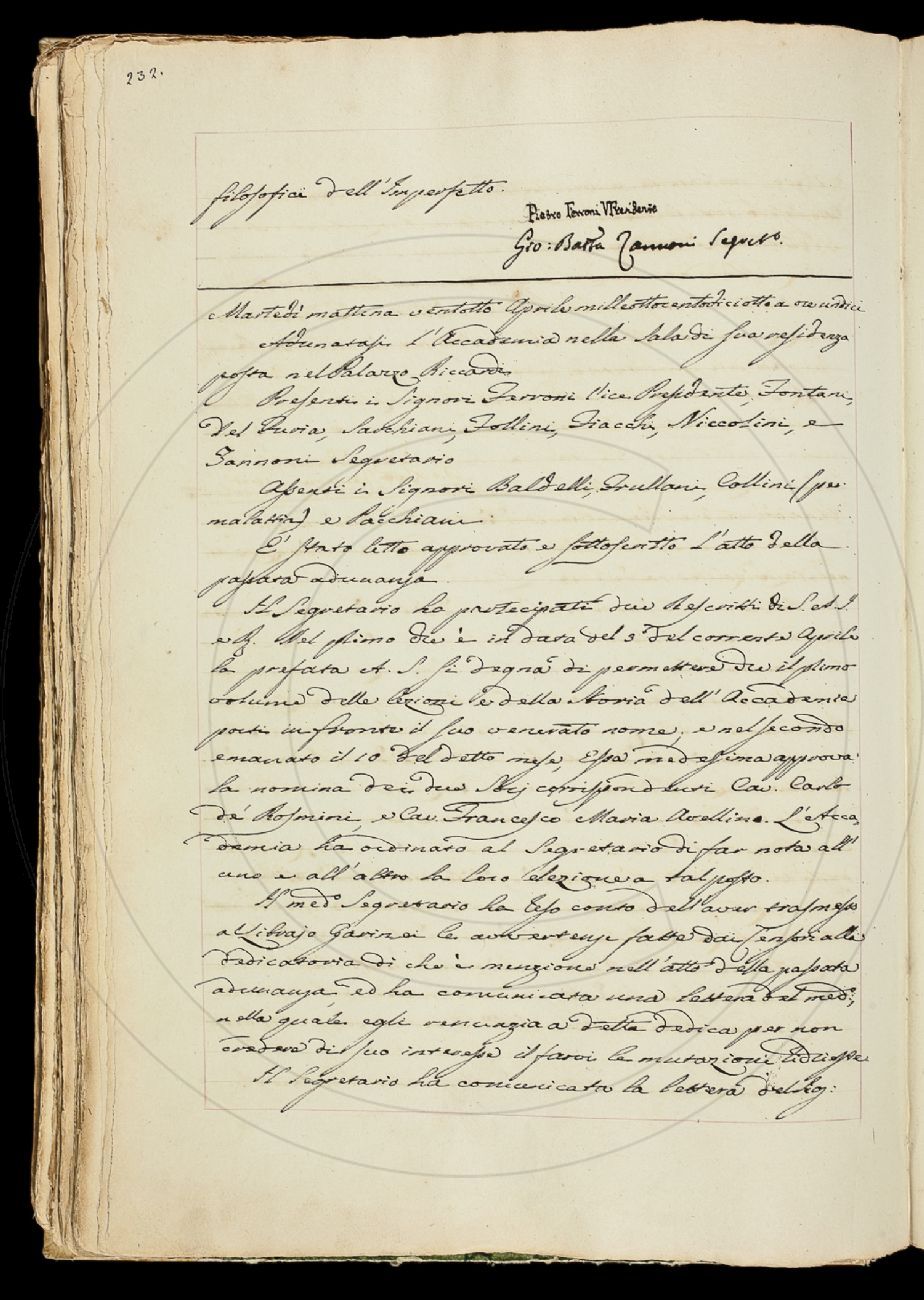 232.
filosofici dell'Imperfetto.
Pietro Ferroni VPresidente
Gio: Batta Zannoni Segret.o
Martedì mattina ventotto Aprile milleottocentodiciotto a ore undici
Adunatasi l'Accademia nella Sala di sua residenza
posta nel Palazzo Riccardi
Presenti i Signori Ferroni Vice Presidente, Fontani,
Del Furia, Sarchiani, Follini, Fiacchi, Niccolini, e
Zannoni Segretario
Assenti i Signori Baldelli, Frullani, Collini (per
malattia) e Pacchiani
E' stato letto approvato e sottoscritto l'atto della
passata adunanza
Il Segretario ha partecipati due Rescritti di S. A. I.
e R. Nel primo che è in data del 3 del corrente Aprile
la prefata A. S. si degna di permettere che il primo
volume delle lezioni e della Storia dell'Accademia
porti in fronte il suo venerato nome; e nel secondo
emanato il 10 del detto mese, Essa medesima approva
la nomina dei due Sozj corrispondenti Cav. Carlo
de' Rosmini, e Cav. Francesco Maria Avellino. L'Acca,
demia ha ordinato al Segretario di far nota all'
uno e all'altro la loro elezione a tal posto.
Il med.o Segretario ha reso conto dell'aver trasmesso
al Librajo Garinei le avvertenze fatte dai Censori alla
dedicatoria di che è menzione nell'atto della passata
adunanza, ed ha comunicata una lettera del med.o,
nella quale egli renunzia a detta dedica per non
credere di suo interesse il farvi le mutazioni richieste
Il Segretario ha comunicata la lettera del Sig: